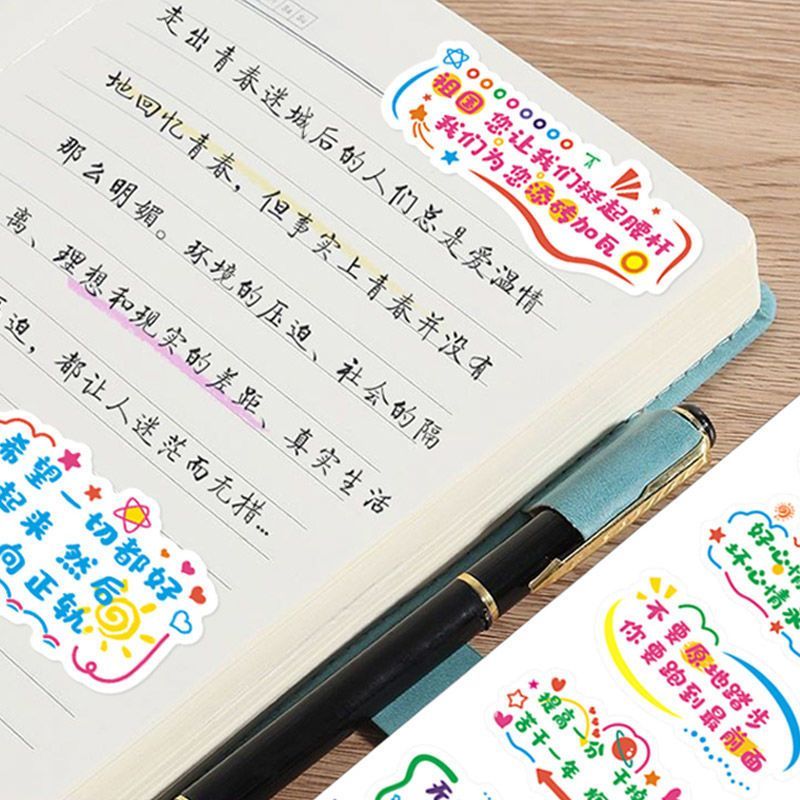 走出青春迷城后的人们总是爱温情
地回忆青春，但事实上青春并没有
那么明媚。环境的压迫、社会的隔
离、理想和现实的差距、真实生活
迫，都让人迷茫而无措...
祖国 您让我们挺起腰杆
我们为您添砖加瓦
希望一切都好
起来 然后
向正轨
好心情
坏心情
不要原地踏步
你要跑到最前面
提高一分 干掉
苦干一年
无